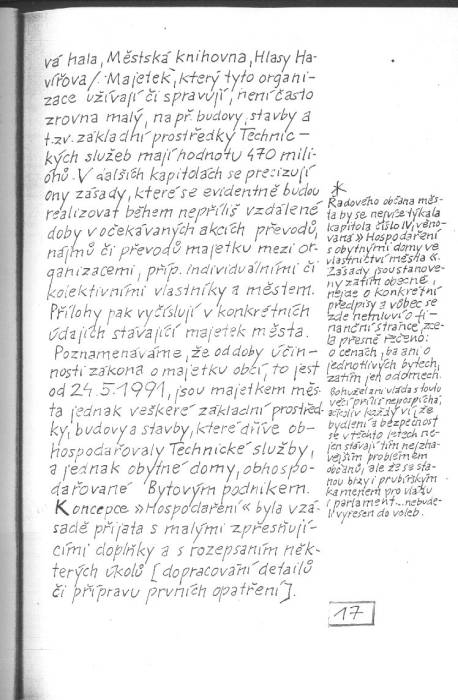 vá hala, Městská knihovna, Hlasy Ha-
vířova/. Majetek, který tyto organi-
zace užívají či spravují, není často
zrovna malý, např. budovy, stavby a
t.zv. základní prostředky Technic-
kých služeb mají hodnotu 470 mili-
ónů. V dalších kapitolách se precizují
ony zásady, které se evidentně budou
realizovat během nepříliš vzdálené
doby v očekávaných akcích převodů,
nájmů či převodů majetku mezi or-
ganizacemi, příp. individuálními či
kolektivními vlastníky a městem.
Přílohy pak vyčíslují v konkrétních
údajích stávající majetek města.
Poznamenáváme, že od doby účin-
nosti zákona o majetku obcí, to jest
od 24.5.1991, jsou majetkem měs-
ta jednak veškeré základní prostřed-
ky, budovy a stavby, které dříve ob-
hospodařovaly Technické služby,
a jednak obytné domy, obhospo-
dařované Bytovým podnikem.
Koncepce »Hospodaření« byla vzá-
sadě přijata s malými zpřesňují-
cími doplňky a s rozepsáním něk-
terých úkolů [dopracování detailů
či přípravu prvních opatření].
*
Řadového občana měs-
ta by se nejvíce týkala
kapitola číslo IV, věno-
vaná »Hospodaření
s obytnými domy ve
vlastnictví města«.
Zásady jsou stanove-
ny zatím obecně,
nejde o konkrétní
předpisy a vůbec se
zde nemluví o fi-
nanční stránce, zce-
la přesně řečeno:
o cenách, ba ani o
jednotlivých bytech,
zatím jen o domech.
Bohužel ani vláda s touto
věcí příliš nepospíchá,
ačkoliv každý ví, že
bydlení a bezpečnost
se v těchto letech ne-
jen stávají tím nejžha-
vějším problémem
občanů, ale že se sta-
nou brzy i prubířským
kamenem pro vládu
i parlament... nebude-
li vyřešen do voleb.
17